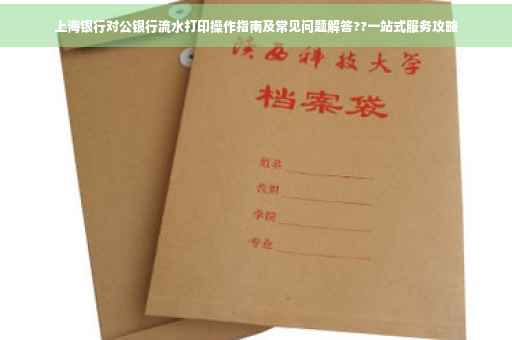 上海银行对公银行流水打印操作指南及常见问题解答??一站式服务攻略
陕西科技大学
档案袋
姓名
学院
专业